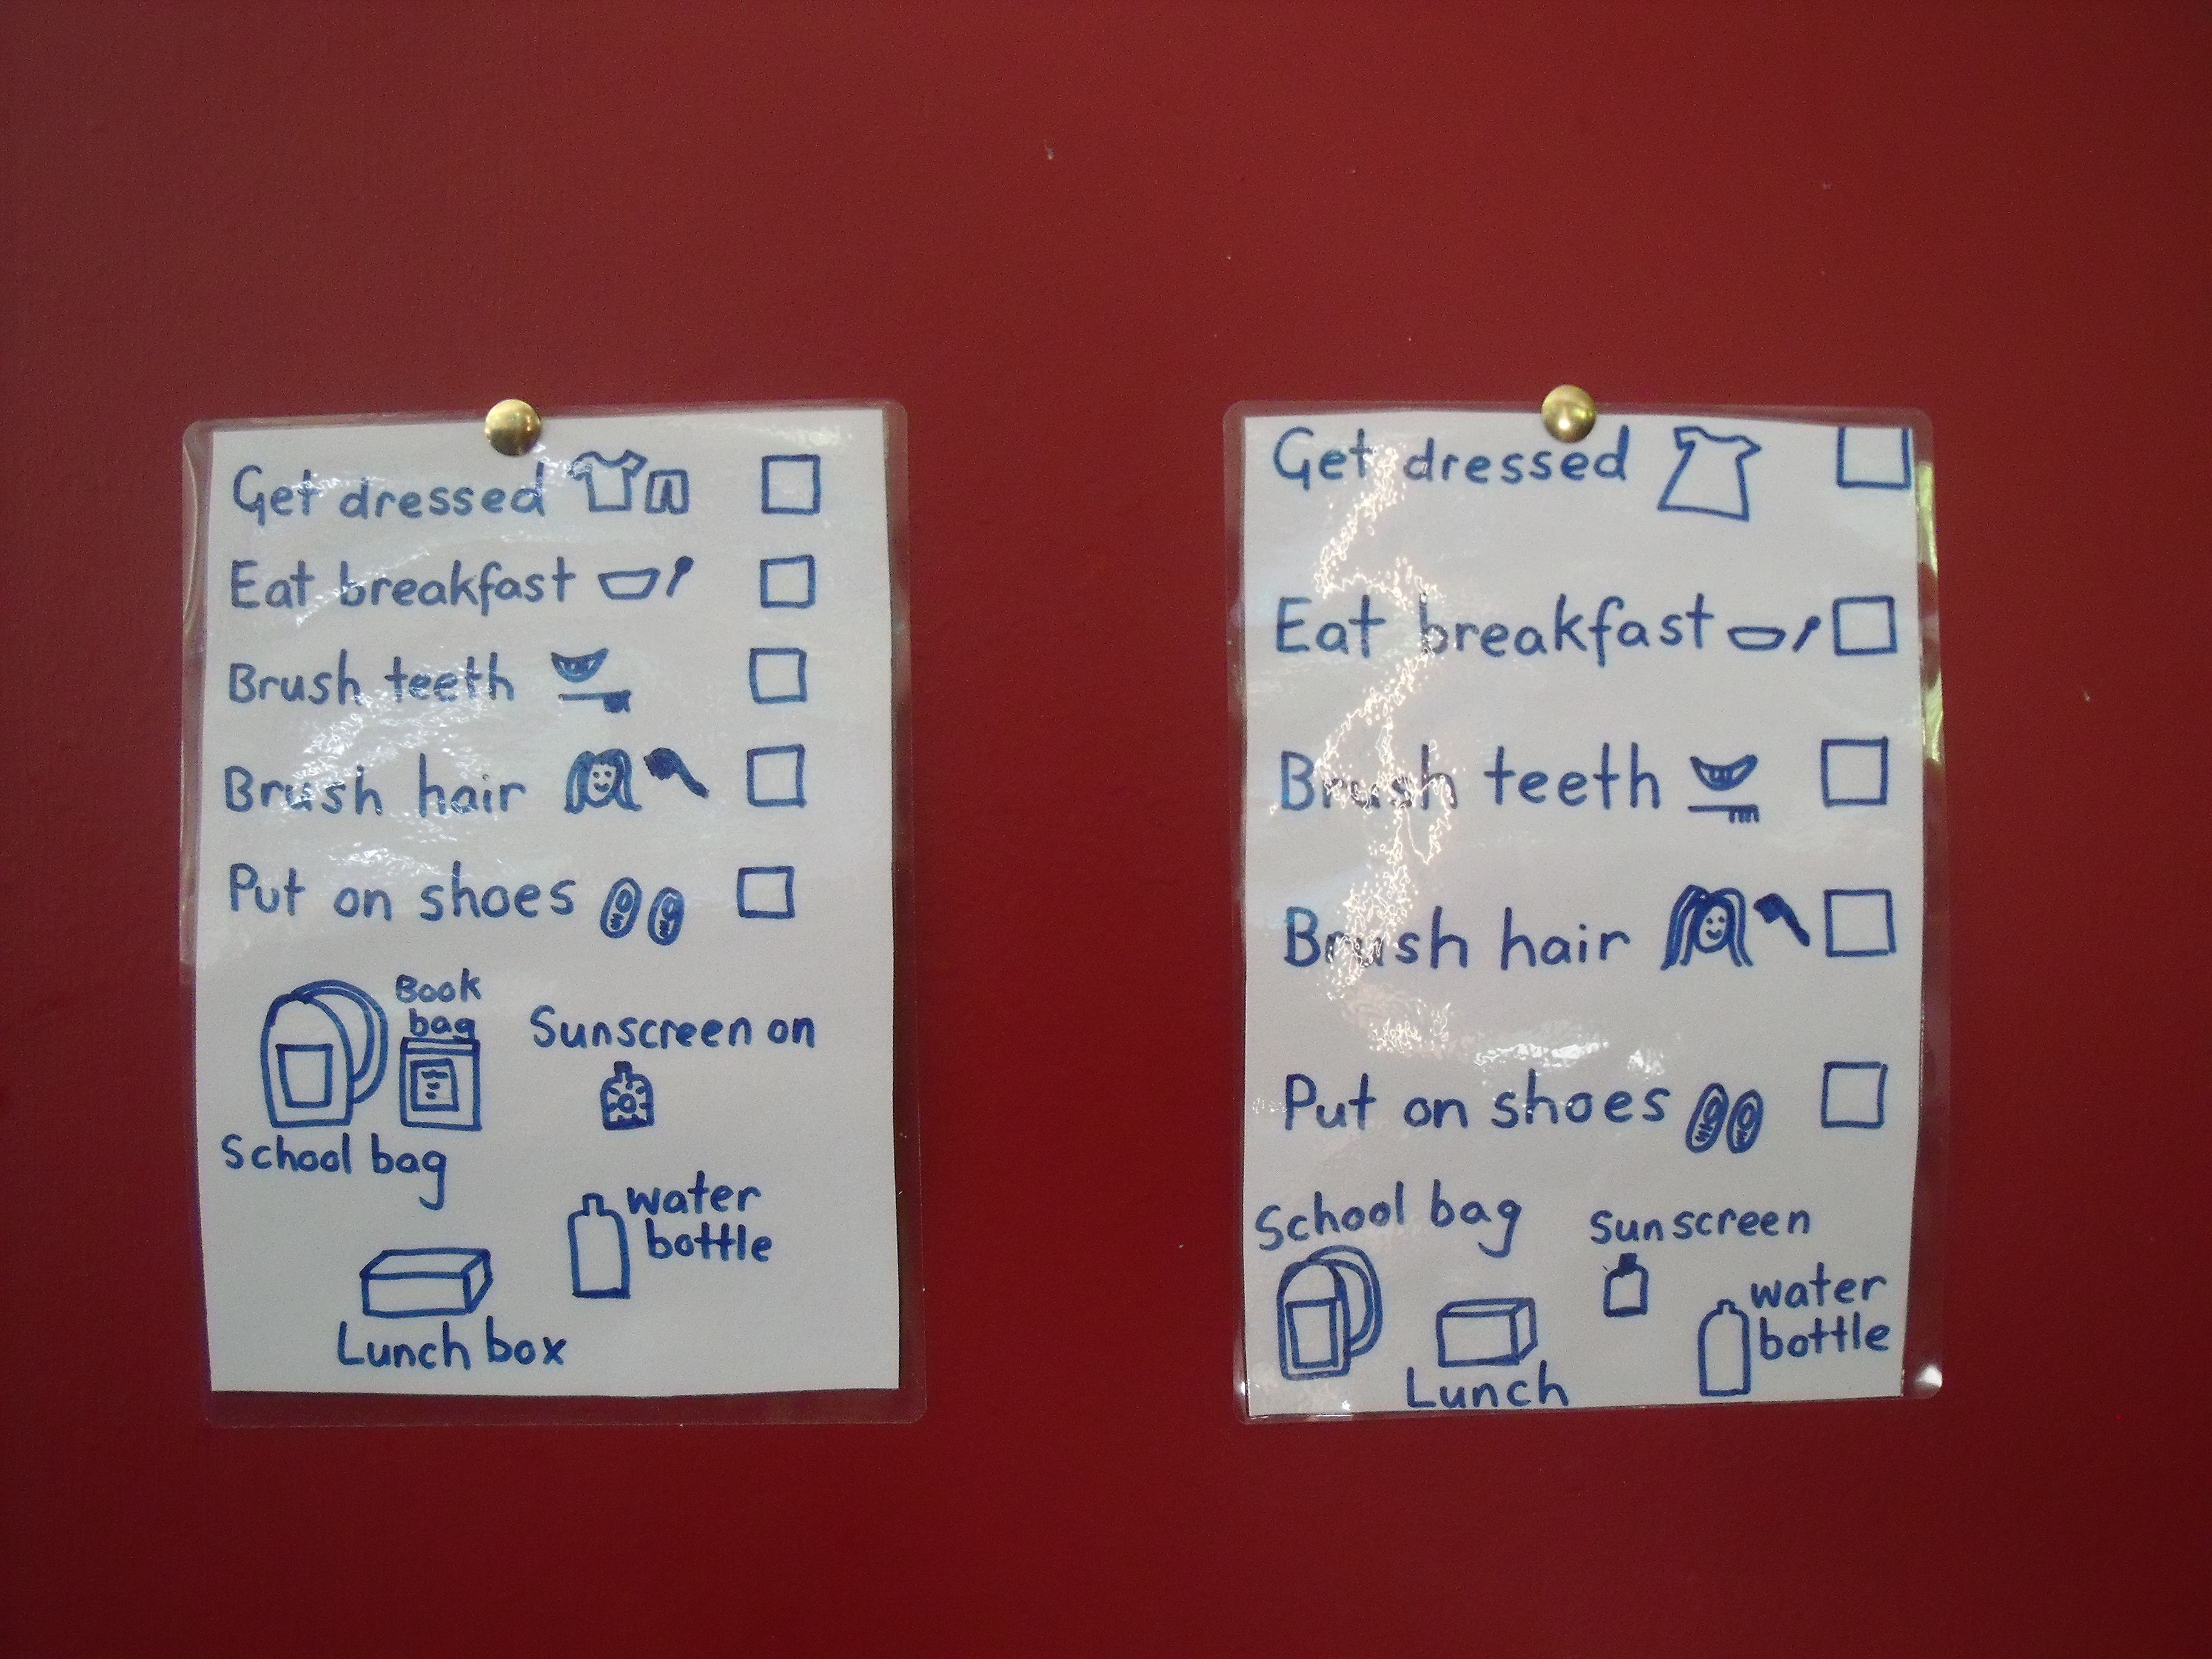 Get dressed
Eat breakfast
Brush teeth
Brush hair
Put on shoes
Book
bag
School bag
Sunscreen on
water
bottle
Lunch box
Get dressed
Eat breakfast
Brush teeth
Brush hair
Put on shoes
School bag
Sunscreen
water
bottle
Lunch